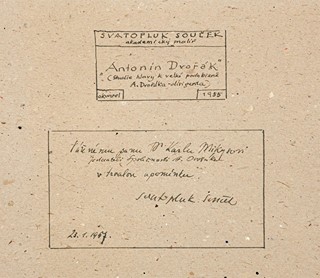 SVATOPLUK SOUČEK
akademický malíř
"Antonín Dvořák"
(studie hlavy k velké podobizně
A. Dvořáka - dirigenta)
olomouc 1955
Váženému panu Dr Karlu Mikysovi
jednateli Společnosti A. Dvořáka
v trvalou upomínku
Svatopluk Souček